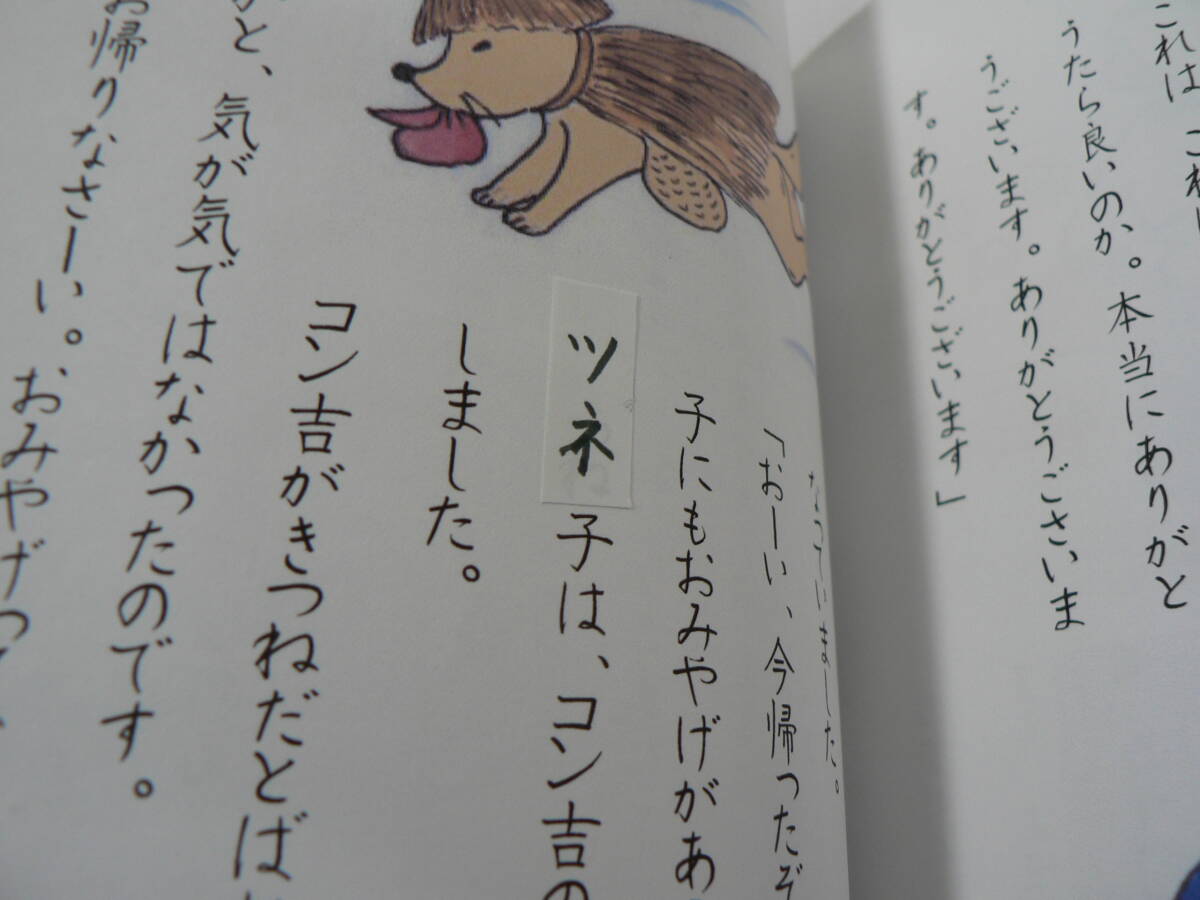 これは これは
うたら良いのか。本当にありがと
うございます。ありがとうございま
す。ありがとうございます」
なっていました。
「おーい、今帰ったぞ
子にもおみやげがあ
ツネ子は、コン吉の
しました。
コン吉がきつねだとば
と、気が気ではなかったのです。
お帰りなさーい。おみやげって、